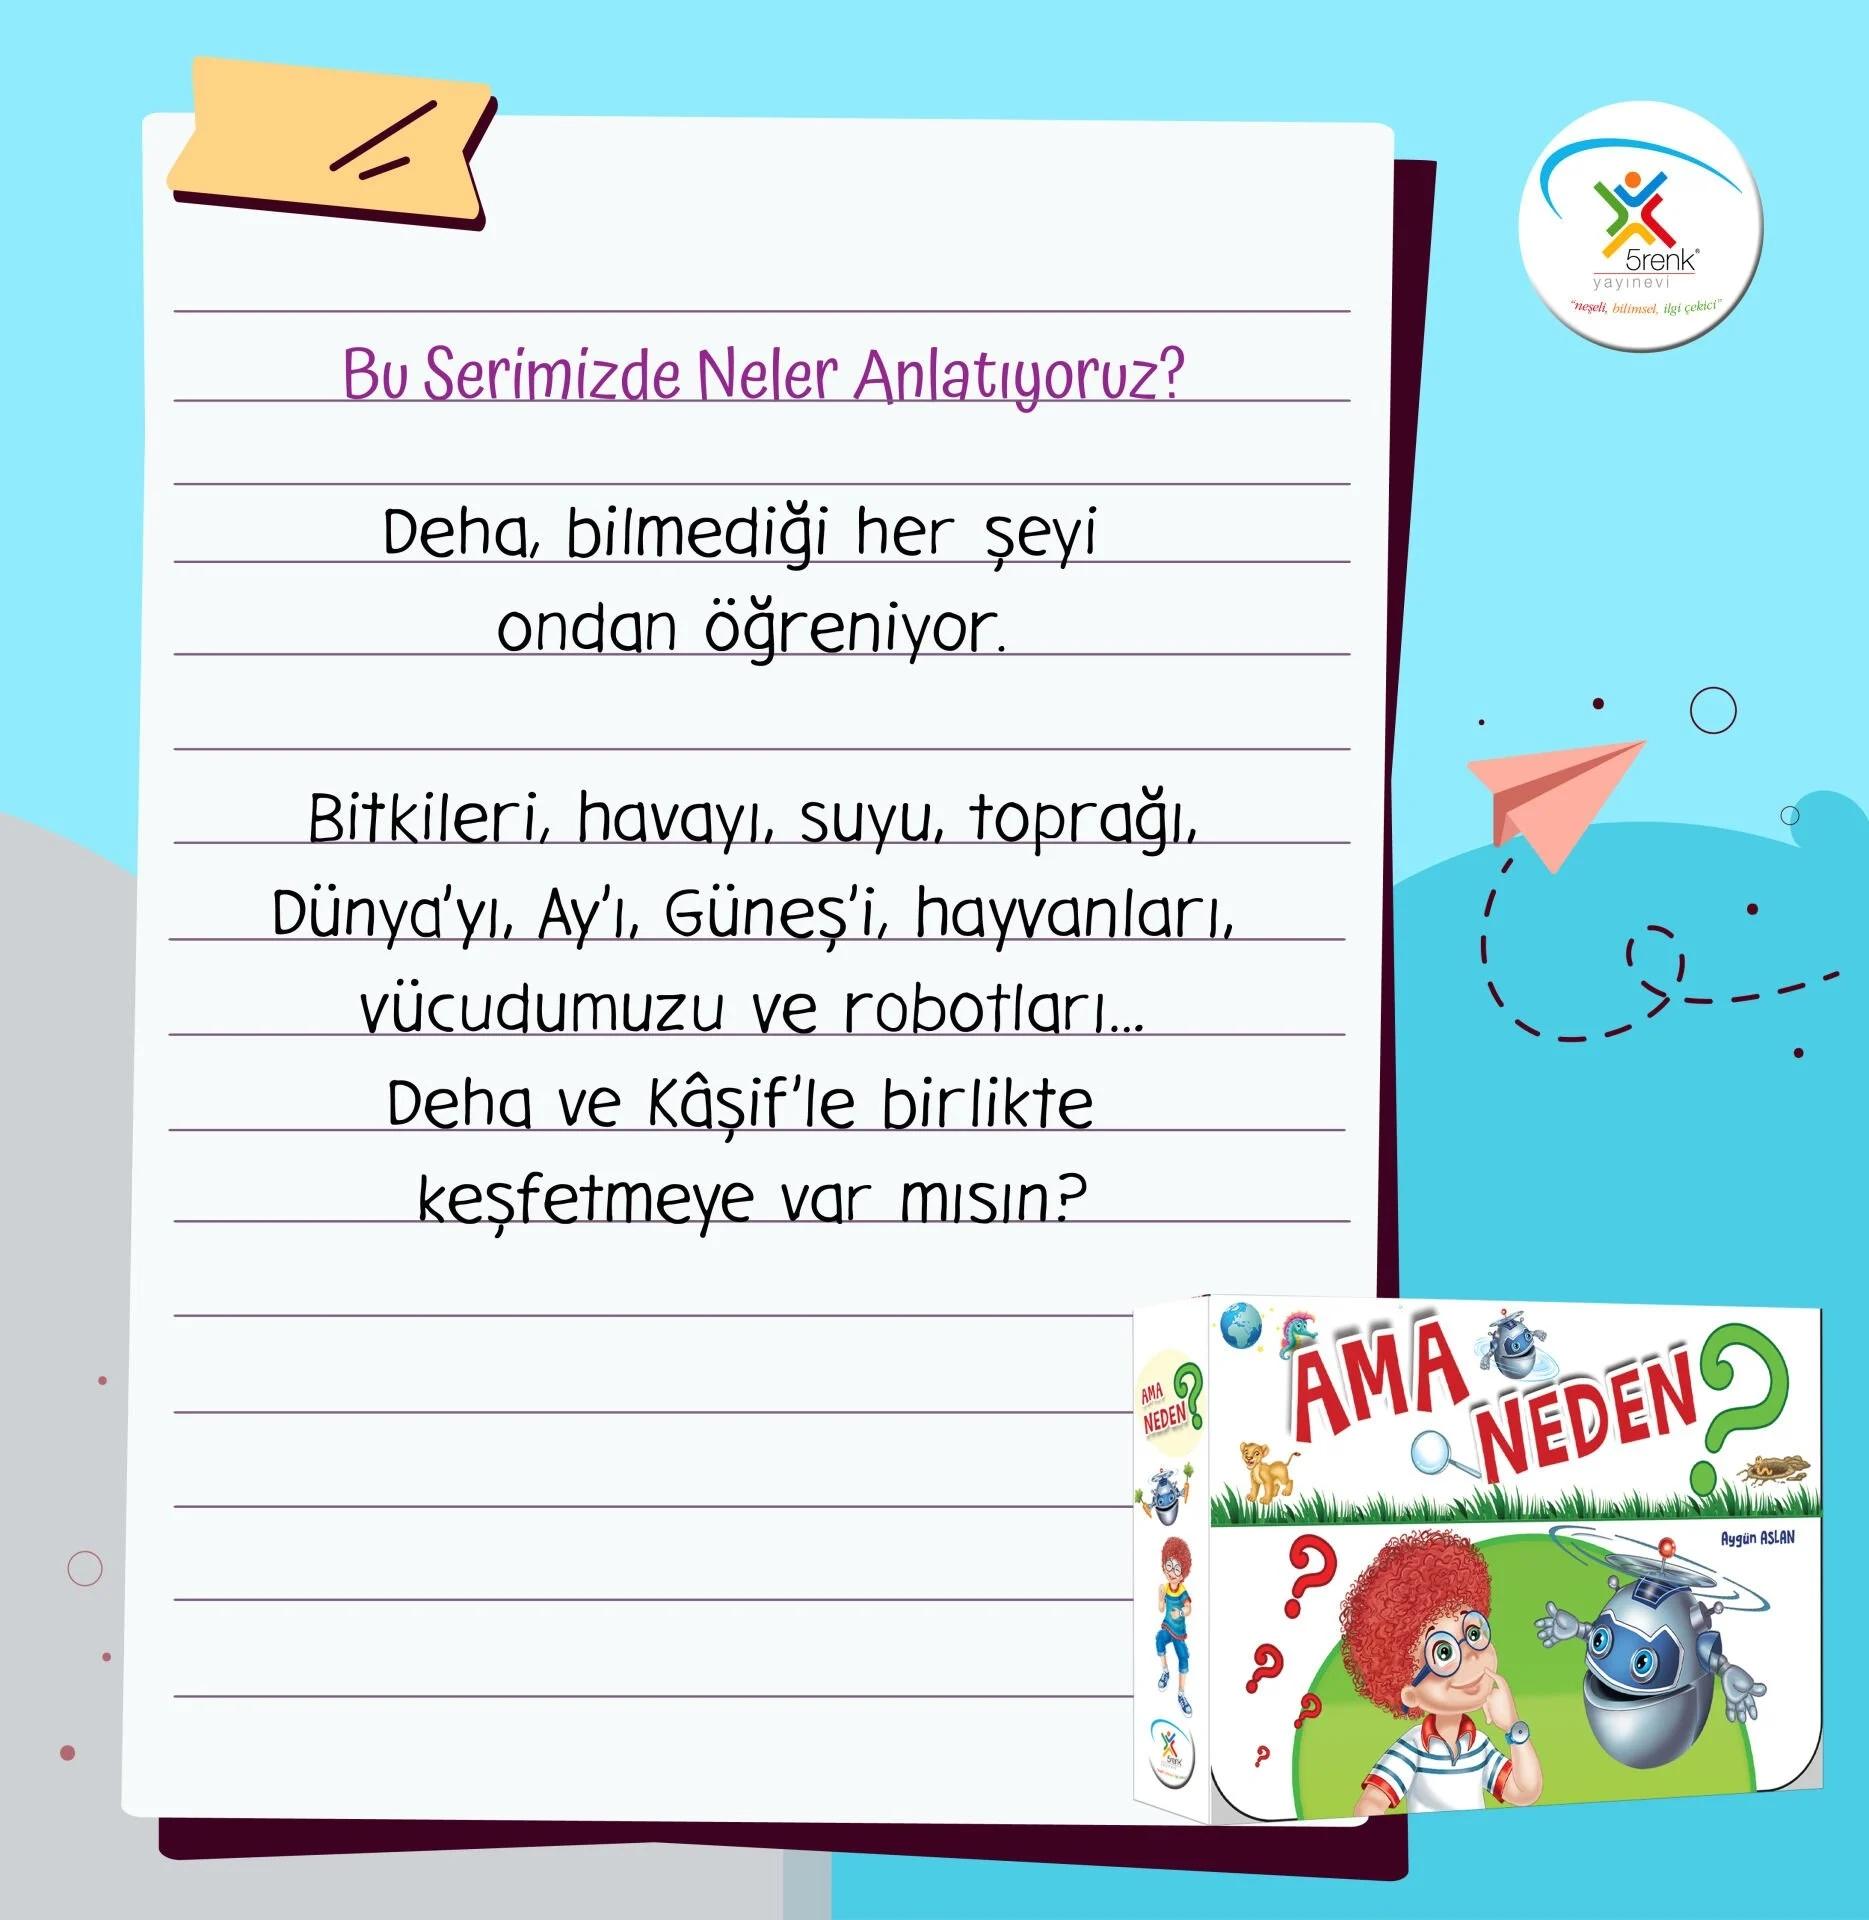 5renk®
yayınevi
"neşeli, bilimsel, ilgi çekici"
Bu Serimizde Neler Anlatıyoruz?
Deha, bilmediği her şeyi
ondan öğreniyor.
Bitkileri, havayı, suyu, toprağı,
Dünya'yı, Ay'ı, Güneş'i, hayvanları,
vücudumuzu ve robotları...
Deha ve Kâşif'le birlikte
keşfetmeye var mısın?
AMA
NEDEN?
AMA
NEDEN?
Aygün ASLAN
5renk